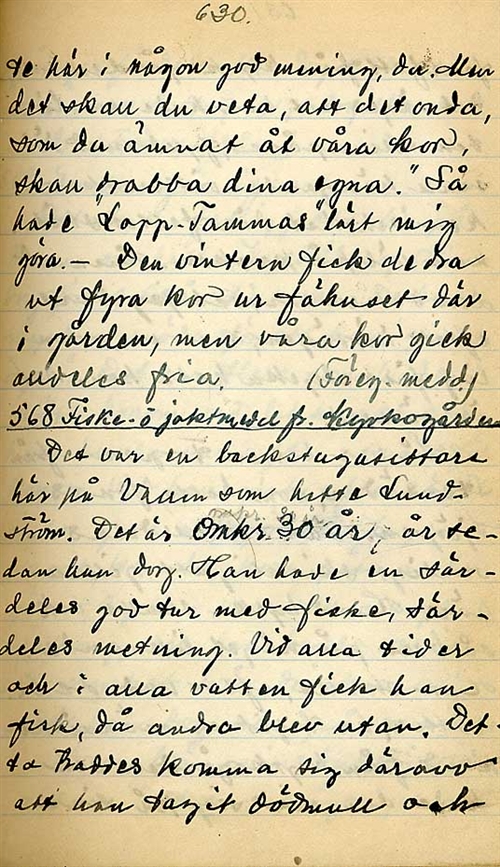 630.
te här i någon god mening, du. Men
det skall du veta, att det onda,
som du ämnat åt våra kor,
skall drabba dina egna." Så
hade "Lapp-Tammas" lärt mig
göra. — Den vintern fick de dra
ut fyra kor ur fähuset där
i gården, men våra kor gick
alldeles fria. (Föreg. medd.)
568 Fiske- o jaktmedel fr. Kyrkogården
Det var en backstugusittare
här på Vallen som hette Lund-
ström. Det är omkr. 30 år, år se-
dan han dog. Han hade en sär-
deles god tur med fiske, sär-
deles metning. Vid alla tider
och i alla vatten fick han
fisk, då andra blev utan. Det-
ta troddes komma sig därav
att han tagit dödmull och